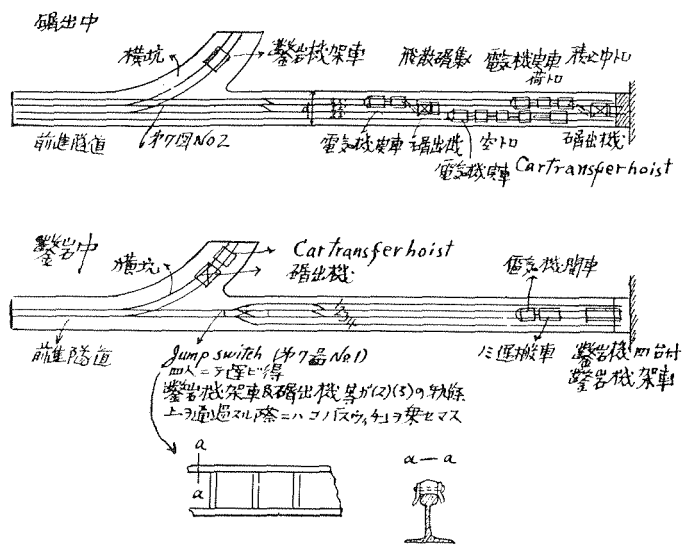 碿出中
横坑
鑿岩機架車
飛散碿集
電気機関車
荷トロ
積込中トロ
前進隧道
第7図No2
電気機関車
碿出機
空トロ
電気機関車
Cartransferhoist
碿出機
鑿岩中
横坑
Cartransferhoist
碿出機
電気機関車
前進隧道
Jump switch (第7図No1)
四人ニテ運ビ得
鑿岩機架車及碿出機等ガ(2)(3)の軌條
上ヲ通過スル際ニハコノスウィッチヲ乗セマス
運搬車
鑿岩機四台付
鑿岩機架車
a
a
a—a